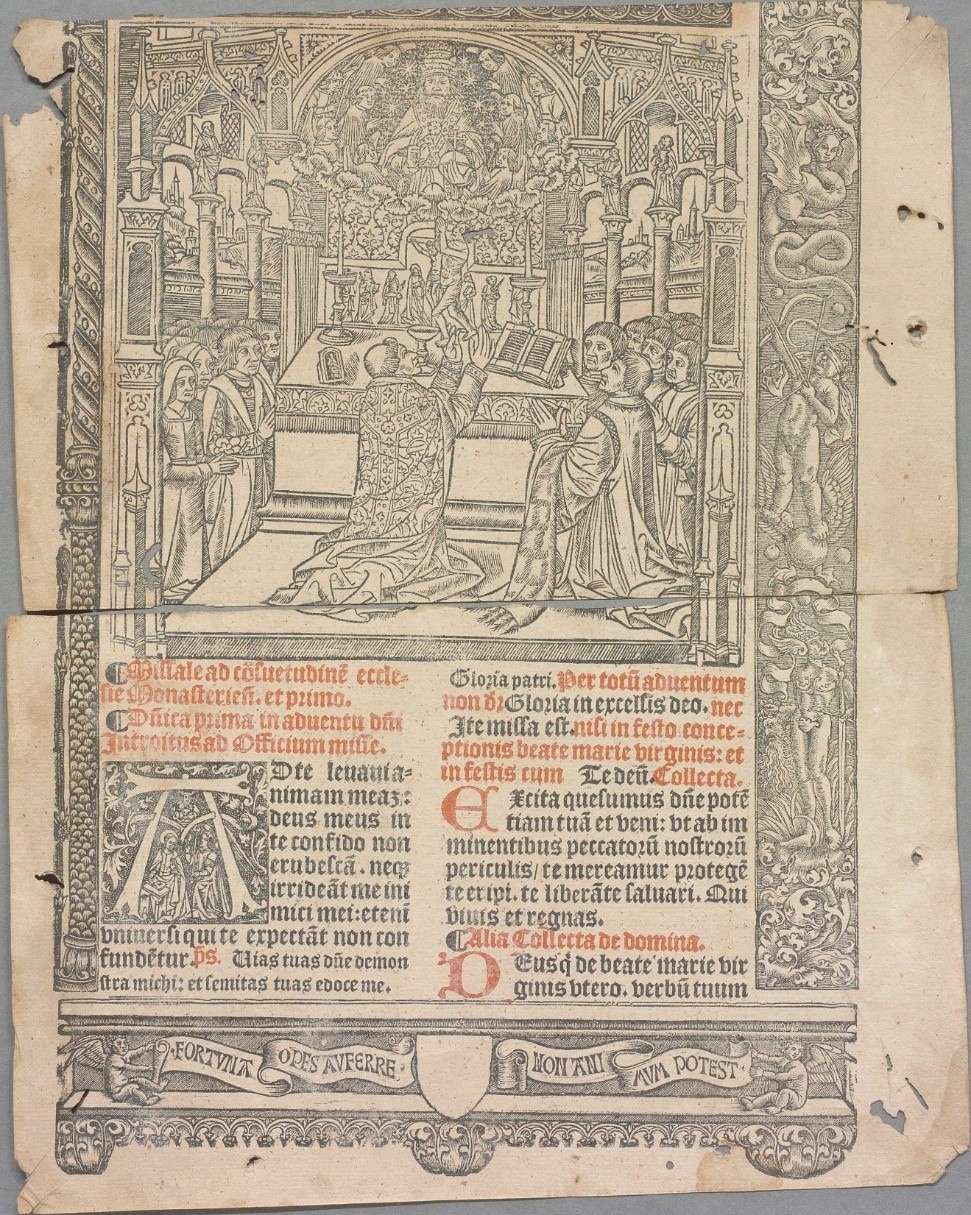 ¶Missale ad cōsuetudinē eccle-
sie Monasterieñ. et primo.
¶Dñica prima in aduentu dñi
Introitus ad Officium misse.
ADte leuaui a-
nimam meaz:
deus meus in
te confido non
erubescā. neqȝ
irrideāt me ini
mici mei: eteni
vniuersi qui te expectāt non con
fundētur. p̄s. Uias tuas dñe demon
stra michi: et semitas tuas edoce me.
Gloria patri. Per totū aduentum
non dr̄ Gloria in excelsis deo. nec
Ite missa est. nisi in festo conce-
ptionis beate marie virginis: et
in festis cum Te deū. Collecta.
EXcita quesumus dñe potē
tiam tuā et veni: vt ab im
minentibus peccatorū nostrorū
periculis/ te mereamur protegē
te eripi. te liberāte saluari. Qui
viuis et regnas.
¶Alia Collecta de domina.
DEus q̄ de beate marie vir
ginis vtero. verbū tuum
·FORTVNA OPES AVFERRE· NON ANI MVM POTEST·